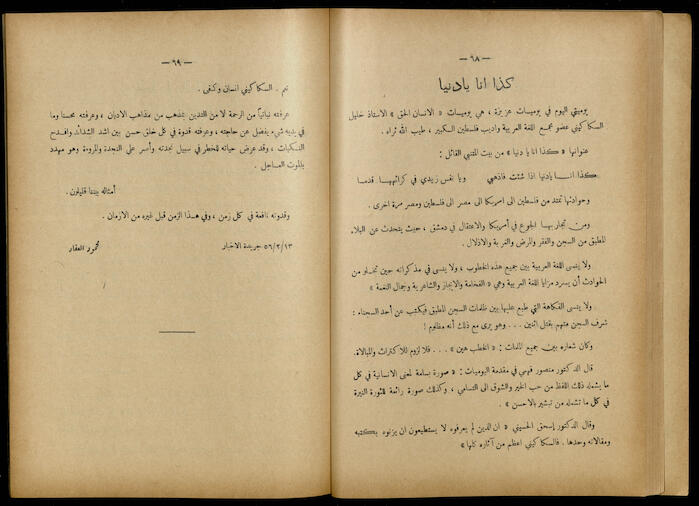 — ٦٨ —
كذا انا يا دنيا
يوميتي اليوم في يوميات عزيزة ، هي يوميات « الانسان الحق » الاستاذ خليل
السكاكيني عضو مجمع اللغة العربية واديب فلسطين الكبير ، طيب الله ثراه .
عنوانها « كذا انا يا دنيا » من بيت المتنبي القائل :
كذا انا يا دنيا اذا شئت فاذهبي ويا نفس زيدي في كرائهها قدما
وحوادثها تمتد من فلسطين الى امريكا الى مصر الى فلسطين ومصر مرة اخرى .
ومن تجاربها الجوع في أمريكا والاعتقال في دمشق ، حيث يتحدث عن البلاء
المطبق من السجن والفقر والمرض والغربة والاذلال .
ولا ينسى اللغة العربية بين جميع هذه الخطوب ، ولا ينسى في مذكراته حين تخلو من
الحوادث أن يسرد مزايا اللغة العربية وهي « الفخامة والايجاز والشاعرية وجمال النغمة »
ولا ينسى الفكاهة التي طبع عليها بين ظلمات السجن المطبق فيكتب عن أحد السجناء :
شرف السجن متهم بقتل اثنين . . . وهو يرى مع ذلك أنه مظلوم !
وكان شعاره بين جميع الملمات : « الخطب هين » . . . فلا لزوم للاكتراث والمبالاة.
قال الدكتور منصور فهمي في مقدمة اليوميات : « صورة بسامة لمعنى الانسانية في كل
ما يشمله ذلك اللفظ من حب الخير والشوق الى التسامي ، وكذلك صورة رائعة للثورة النيرة
في كل ما تشمله من تبشير بالاحسن »
وقال الدكتور إسحق الحسيني « ان الذين لم يعرفوه لا يستطيعون ان يزنوه بكتبه
ومقالاته وحدها . فالسكاكيني اعظم من آثاره كلها »
— ٦٩ —
نعم . السكاكيني انسان وكفى .
عرفته نباتياً من الرحمة لا من التدين بمذهب من مذاهب الاديان ، وعرفته محسنا وما
في يديه شيء يفضل عن حاجته ، وعرفته قدوة في كل خلق حسن بين اشد الشدائد وافدح
النكبات ، وقد عرض حياته للخطر في سبيل نجدته وأسر على النجدة والمروءة وهو مهدد
بالموت العاجل .
أمثاله بيننا قليلون .
وقدوته نافعة في كل زمن ، وفي هذا الزمن قبل غيره من الازمان .
٥٦/٣/١٣ جريدة الاخبار
محمود العقاد